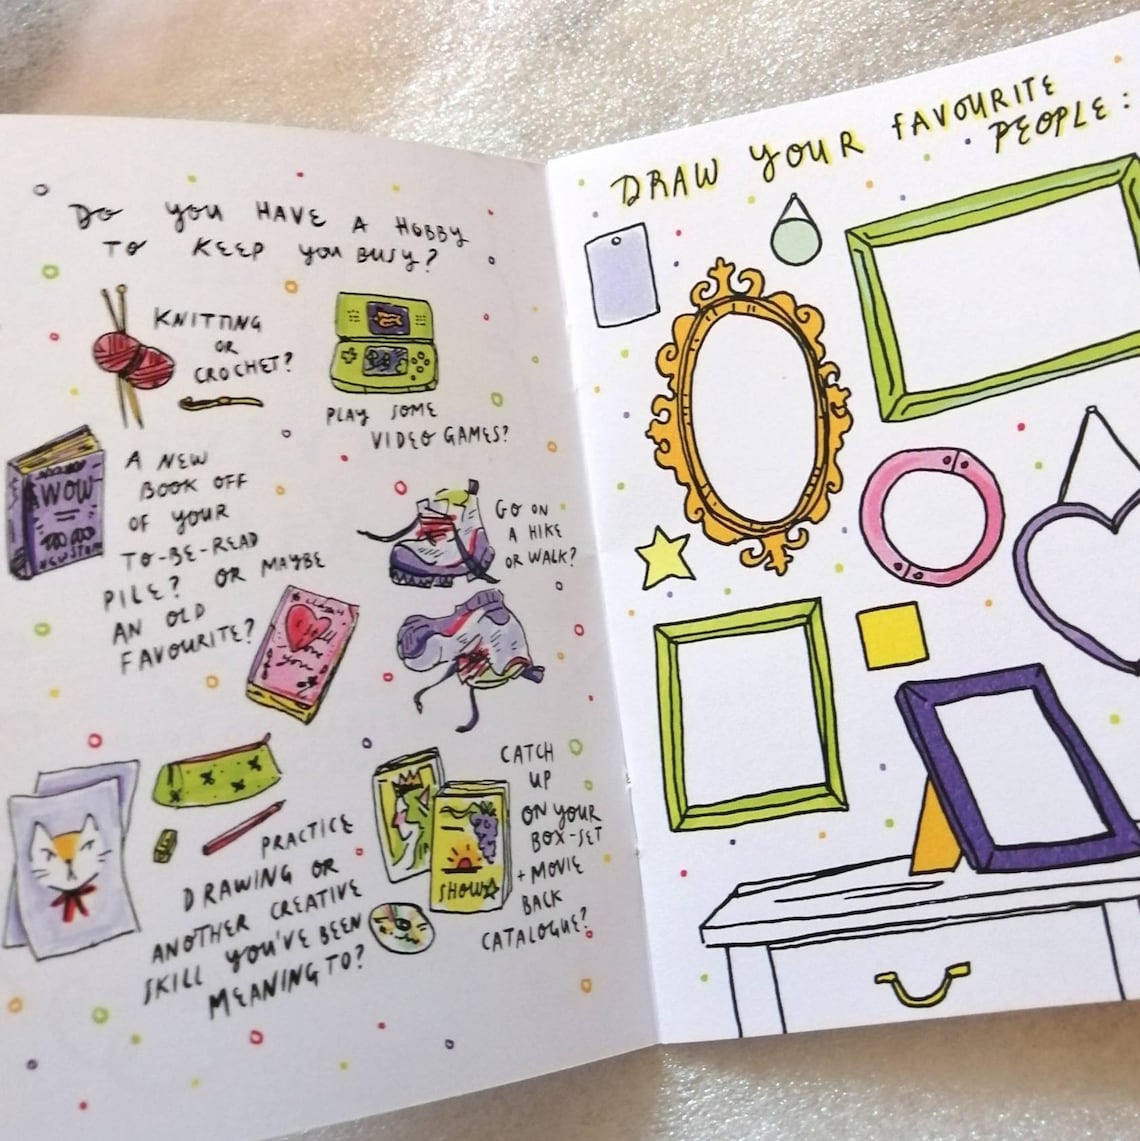 Do you HAVE A HOBBY
TO KEEP you BUSY?
KNITTING
OR
CROCHET?
PLAY SOME
VIDEO GAMES?
WOW
A NEW
BOOK OFF
OF YOUR
TO-BE-READ
PILE? OR MAYBE
AN OLD
FAVOURITE?
GO ON
A HIKE
OR WALK?
I still
love
you
PRACTICE
DRAWING OR
ANOTHER CREATIVE
SKILL YOU'VE BEEN
MEANING TO?
SHOWS
CATCH
UP
ON YOUR
BOX-SET
+ MOVIE
BACK
CATALOGUE?
DRAW YOUR FAVOURITE
PEOPLE: